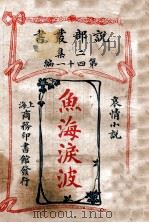 說部叢書
二集
第四十一編
哀情小說
魚海淚波
上海商務印書館發行